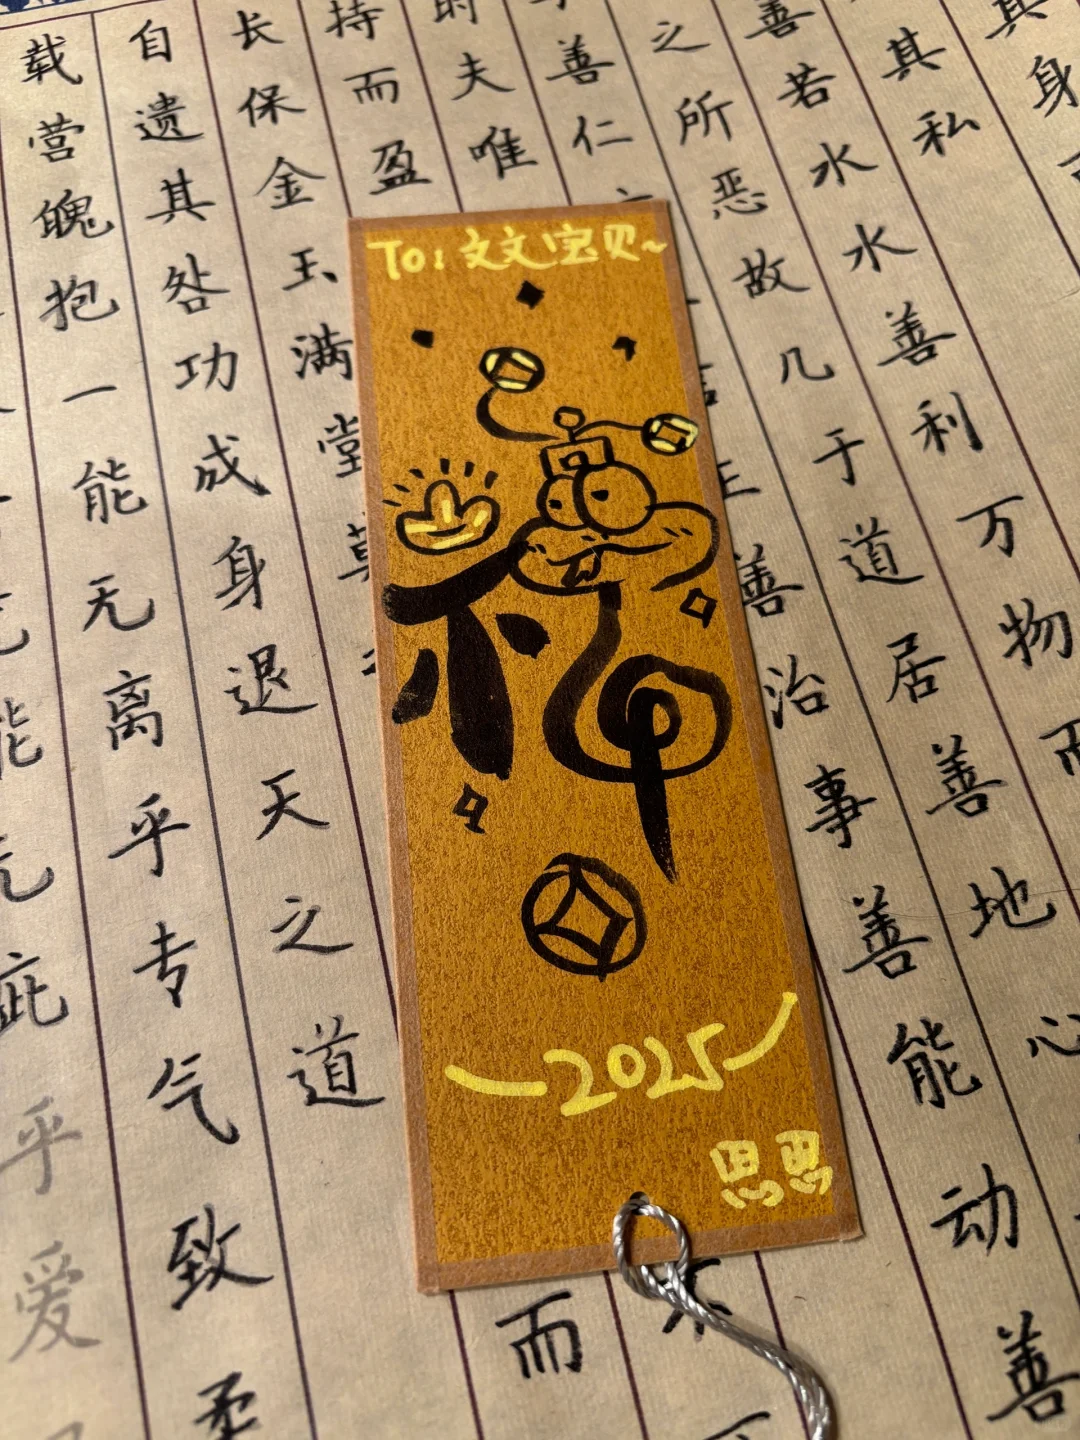 其身
其私
善若水水善利万物而
之所恶故几于道居善地心
善仁
信正善治事善能动善
时夫唯
持而盈
而
长保金玉满堂莫
自遗其咎功成身退天之道
载营魄抱一能无离乎专气致柔
能无疵乎爱
To：文文宝贝~
福
2025
思思